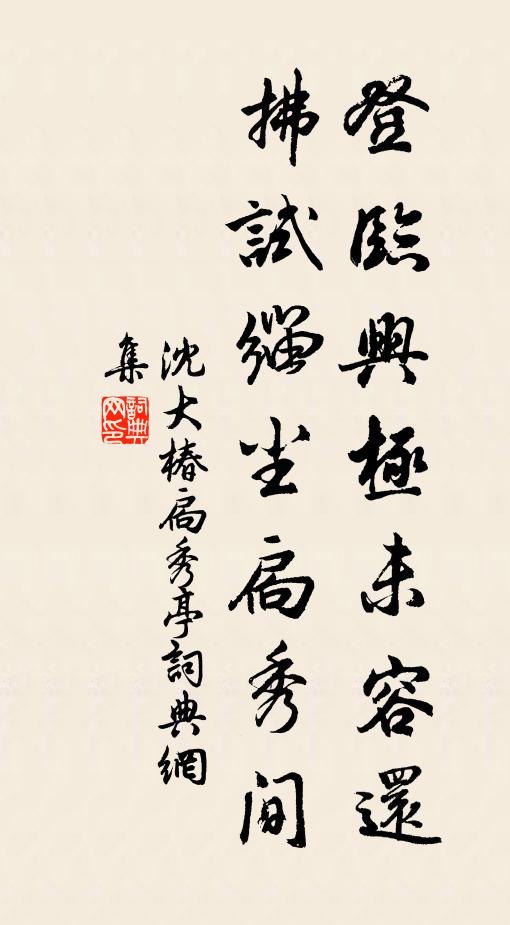 登臨興極未容還
拂試缁尘扃秀间
沈大椿扃秀亭詞典網
集
詞典
网印